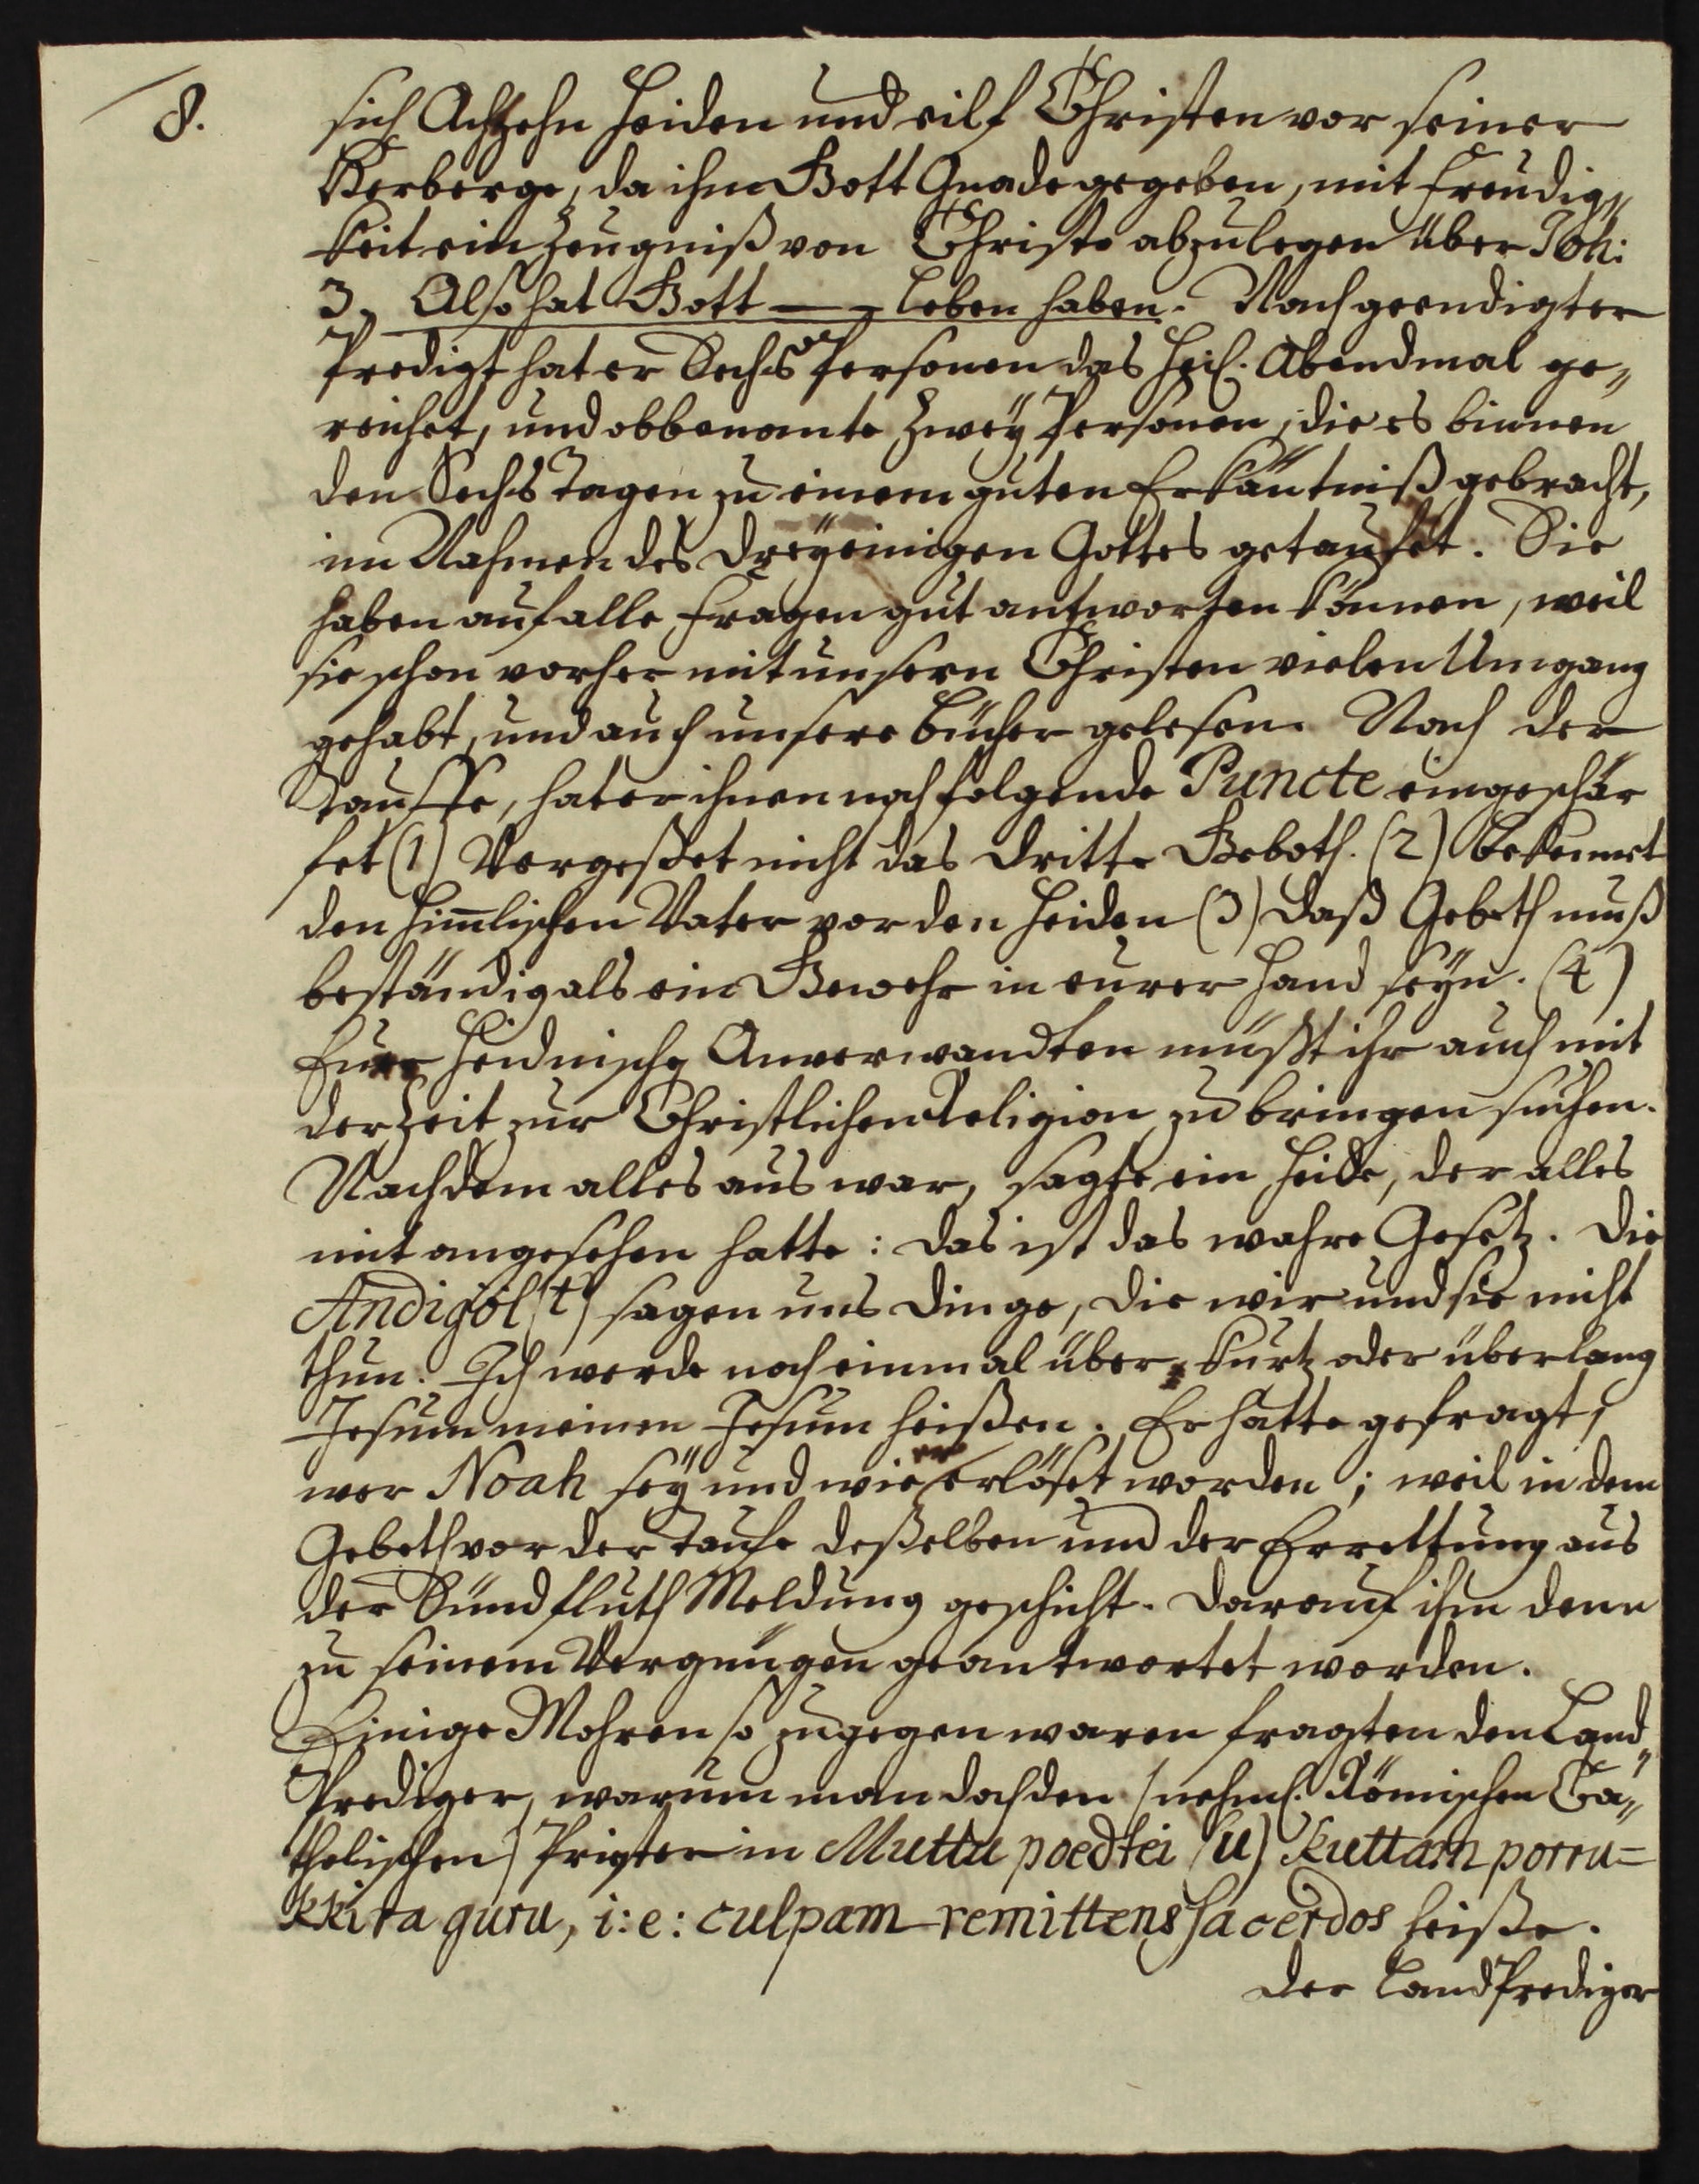 8.
sich Achtzehn Heiden und eilf Christen vor seiner
Herberge, da ihm Gott Gnade gegeben, mit Freudig„
keit ein Zeugniß von Christo abzulegen über Joh:
3. Also hat Gott — – Leben haben. Nach geendigter
Predigt hat er Sechs Personen das Heil. Abendmal ge„
reichet, und obbenamte Zwey Personen, die es binnen
den Sechs Tagen zu einem guten Erkäntniß gebracht,
im Nahmen des dreyeinigen Gottes getaufet. Sie
haben auf alle Fragen gut antworten können, weil
sie schon vorher mit unsern Christen vielen Umgang
gehabt, und auch unsere Bücher gelesen. Nach der
Tauffe, hat er ihnen nachfolgende Puncte eingeschär
fet (1) Vergeßet nicht das dritte Geboth. (2) Bekennet
den Himlischen Vater vor den Heiden (3) Daß Gebeth muß
beständig als ein Gewehr in eurer Hand seyn. (4)
Eure Heidnische Anverwandten müßt ihr auch mit
der Zeit zur Christlichen Religion zu bringen suchen.
Nachdem alles aus war, sagte ein Heide, der alles
mit angesehen hatte: Das ist das wahre Gesetz. Die
Andigöl (t) sagen uns Dinge, die wir und sie nicht
thun. Ich werde noch einmal über kurtz oder über lang
Jesum meinen Jesum heißen. Er hatte gefragt,
wer Noah sey und wie er erlöset worden; weil in dem
Gebeth vor der Taufe deßelben und der Errettung aus
der Sündfluth Meldung geschicht. Darauf ihm denn
zu seinem Vergnügen geantwortet worden.
Einige Mohren so zugegen waren fragten den Land„
Prediger, warum man doch den (nehml. Römischen Ca„
tholischen) Prister in Muttu poedtei (u) kuttam porru=
kkira guru, i: e: culpam remittens sacerdos heiße.
Der LandPrediger